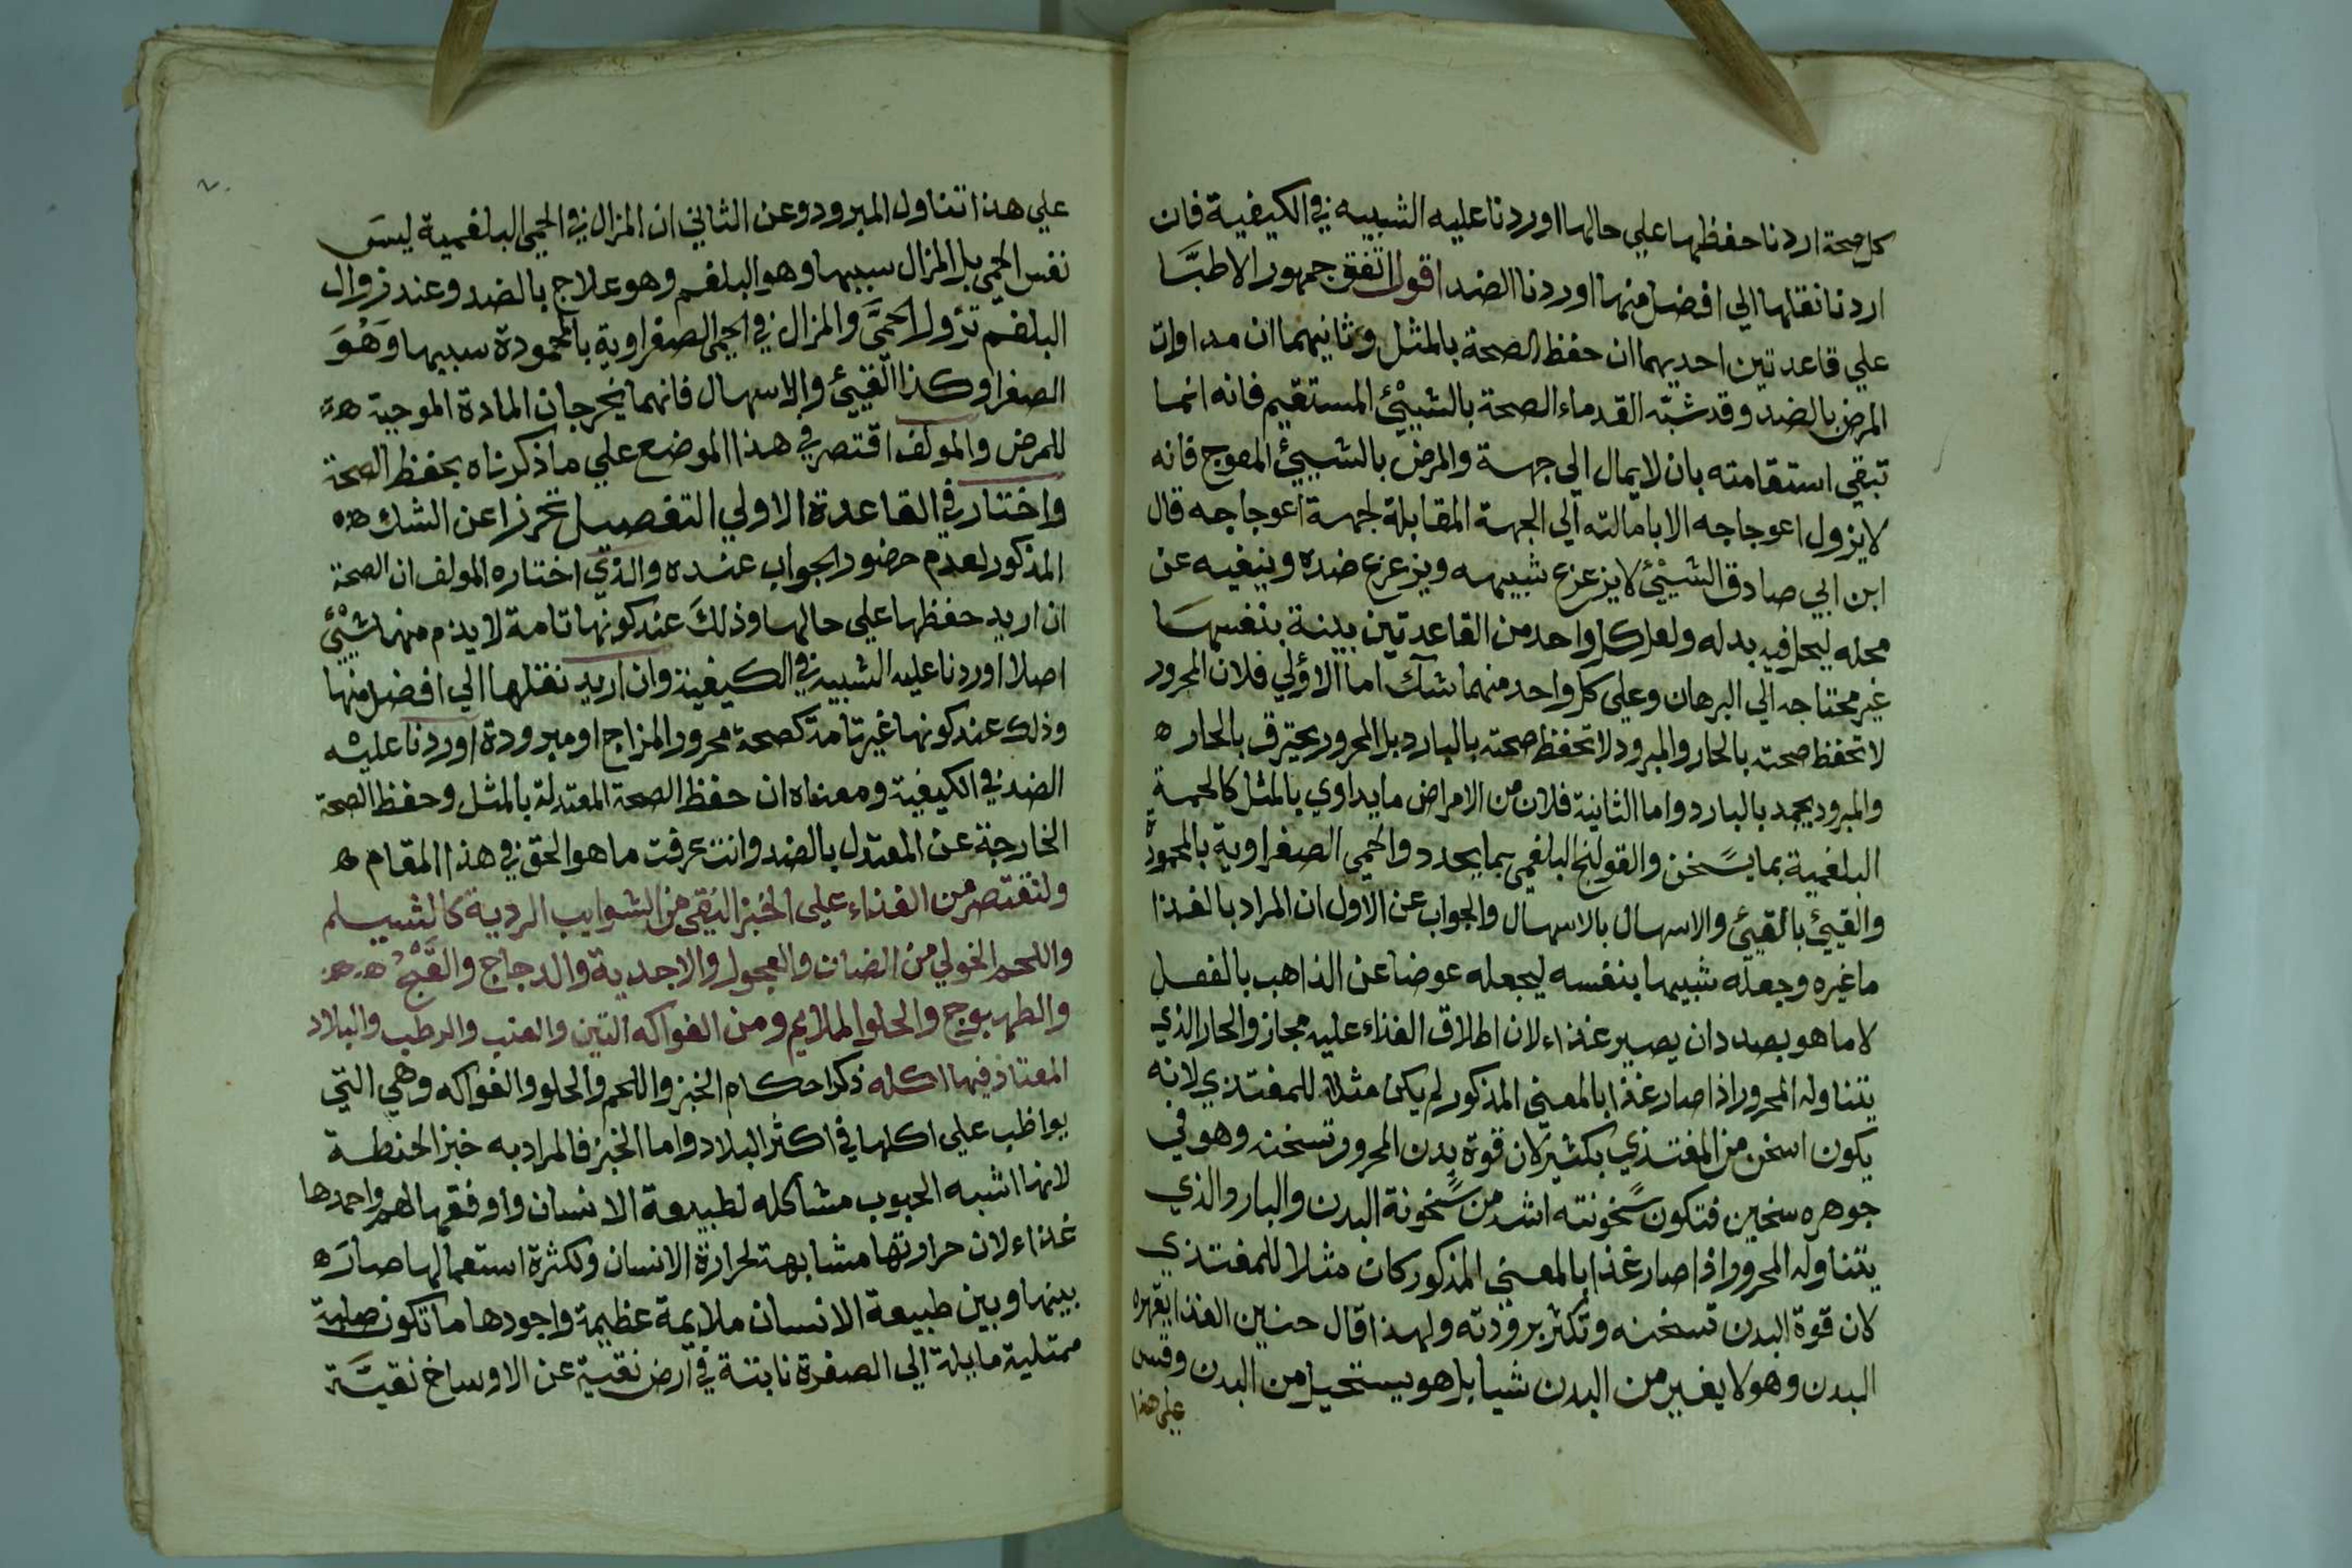 كل صحة اردنا حفظها علي حالها اوردنا عليه الشبيه في الكيفية فان
اردنا نقلها الي افضل منها اوردنا الضد اقول اتفق جمهور الاطبَّا
علي قاعدتين احديهما ان حفظ الصحة بالمثل وثانيهما ان مداوات
المرض بالضد وقد شبّه القدماء الصحة بالشيئ المستقيم فانه انما
تبقي استقامته بان لا يمال الي جهة والمرض بالشيئ المعوج فانه
لا يزول اعوجاجه الا بامالته الي الجهة المقابلة لجهة اعوجاجه قال
ابن ابي صادق الشيئ لا يزعزع شبيهه ويزعزع ضده وينفيه عن
محله ليحل فيه بدله ولعل كل واحد من القاعدتين بينة بنفسها
غير محتاجه الي البرهان وعلي كل واحد منهما شك اما الاولي فلان المحرور
لا تحفظ صحته بالحار والمبرود لا تحفظ صحته بالبارد بل المحرور يحترق بالحار ه
والمبرود يجمد بالبارد واما الثانية فلان من الامراض ما يداوي بالمثل كالحمي
البلغمية بما يسخن والقولنج البلغمي بما يخدر والحمي الصفراوية بالمحمودة
والقيئ بالقيئ والاسهال بالاسهال والجواب عن الاول ان المراد بالغذا
ما غيره وجعله شبيها بنفسه ليجعله عوضا عن الذاهب بالفعل
لا ما هو بصدد ان يصير غذاء لان اطلاق الغذاء عليه مجاز والحار الذي
يتناوله المحرور اذا صار غذا بالمعني المذكور لم يكن مثلا للمغتذي لانه
يكون اسخن من المغتذي بكثير لان قوة بدن المحرور تسخنه وهو في
جوهره سخين فتكون سخونته اشد من سخونة البدن والبارد الذي
يتناوله المحرور اذا صار غذا بالمعني المذكور كان مثلا للمغتذي
لان قوة البدن تسخنه وتكثر برودته ولهذا قال حنين الغذا يقهره
البدن وهو لا يغير من البدن شيا بل هو يستحيل من البدن وقس
علي هذا
علي هذا تناول المبرود وعن الثاني ان المزال في الحمي البلغمية ليسَ
نفس الحمي بل المزال سببها وهو البلغم وهو علاج بالضد وعند زوال
البلغم تزول الحميَّ والمزال في الحمي الصفراوية بالمحمودة سببها وَهُوَ
الصفرا وكذا القيئ والاسهال فانهما يخرجان المادة الموجبة ه
للمرض والمولف اقتصر في هذا الموضع علي ما ذكرناه بحفظ الصحة
واختار في القاعدة الاولي التفصيل تحرزا عن الشك ه
المذكور لعدم حضور الجواب عنده والذي اختاره المولف ان الصحة
ان اريد حفظها علي حالها وذلكَ عند كونها تامة لا يذم منها شيْئ
اصلا اوردنا عليه الشبيه في الكيفية وان اريد نقلها الي افضل منها
وذلك عند كونها غير تامة كصحة محرور المزاج او مبرودة اوردنا عليه
الضد في الكيفية ومعناه ان حفظ الصحة المعتدلة بالمثل وحفظ الصحة
الخارجة عن المعتدل بالضد وانت عرفت ما هو الحق في هذا المقام ه
ولنقتصر من الغذاء علي الخبز النقي من الشوايب الردية كالشيلم
واللحم الحولي من الضان والعجول والاجدية والدجاج والقَبْج ه
والطهيوج والحلو الملايم ومن الفواكه التين والعنب والرطب والبلاد
المعتاد فيها اكله ذكر احكام الخبز واللحم والحلو والفواكه وهي التي
يواظب علي اكلها في اكثر البلاد واما الخبز فالمراد به خبز الحنطة
لانها اشبه الحبوب مشاكله لطبيعة الانسان واوفقها لهم واحمدها
غذاء لان حرارتها مشابهة لحرارة الانسان ولكثرة استعمالها صارَ ه
بينها وبين طبيعة الانسان ملايمة عظيمة واجودها ما تكون صلبة
ممتلية مايلة الي الصفرة نابتة في ارض نقية عن الاوساخ نقيَّة